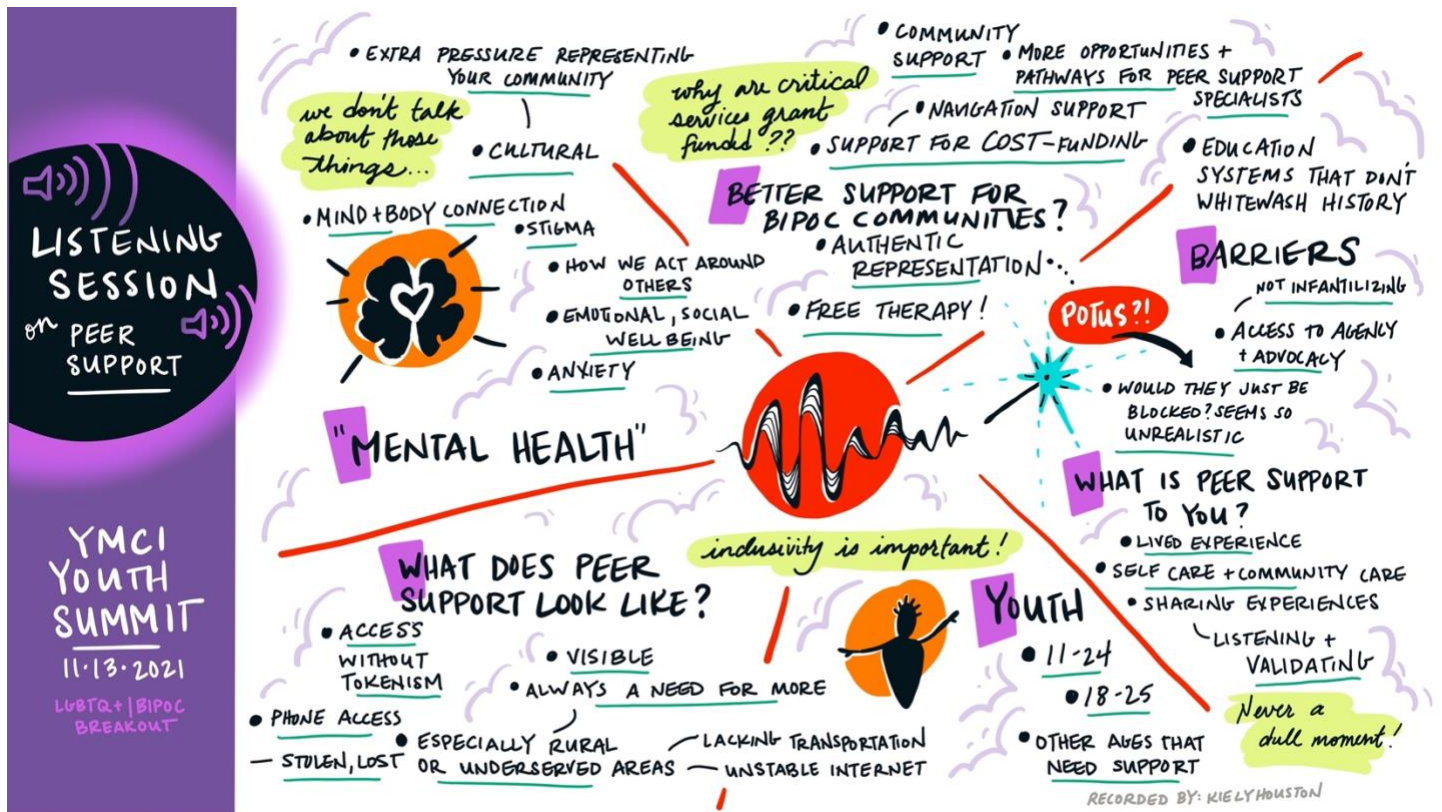 LISTENING
SESSION
on PEER
SUPPORT
YMCI
YOUTH
SUMMIT
11·13·2021
LGBTQ+|BIPOC
BREAKOUT
• EXTRA PRESSURE REPRESENTING
YOUR COMMUNITY
we don't talk
about those
things...
• CULTURAL
• MIND + BODY CONNECTION
• STIGMA
• HOW WE ACT AROUND
OTHERS
• EMOTIONAL, SOCIAL
WELL BEING
• ANXIETY
"MENTAL HEALTH"
why are critical
services grant
funded??
• COMMUNITY
SUPPORT
• MORE OPPORTUNITIES +
PATHWAYS FOR PEER SUPPORT
SPECIALISTS
• NAVIGATION SUPPORT
• SUPPORT FOR COST-FUNDING
BETTER SUPPORT FOR
BIPOC COMMUNITIES?
• AUTHENTIC
REPRESENTATION
• FREE THERAPY!
• EDUCATION
SYSTEMS THAT DON'T
WHITEWASH HISTORY
BARRIERS
NOT INFANTILIZING
• ACCESS TO AGENCY
+ ADVOCACY
POTUS?!
• WOULD THEY JUST BE
BLOCKED? SEEMS SO
UNREALISTIC
WHAT IS PEER SUPPORT
TO YOU?
• LIVED EXPERIENCE
• SELF CARE + COMMUNITY CARE
• SHARING EXPERIENCES
LISTENING +
VALIDATING
Never a
dull moment!
WHAT DOES PEER
SUPPORT LOOK LIKE?
• ACCESS
WITHOUT
TOKENISM
• VISIBLE
• ALWAYS A NEED FOR MORE
• PHONE ACCESS
— STOLEN, LOST
• ESPECIALLY RURAL
OR UNDERSERVED AREAS
— LACKING TRANSPORTATION
— UNSTABLE INTERNET
inclusivity is important!
YOUTH
• 11-24
• 18-25
• OTHER AGES THAT
NEED SUPPORT
RECORDED BY: KIELY HOUSTON